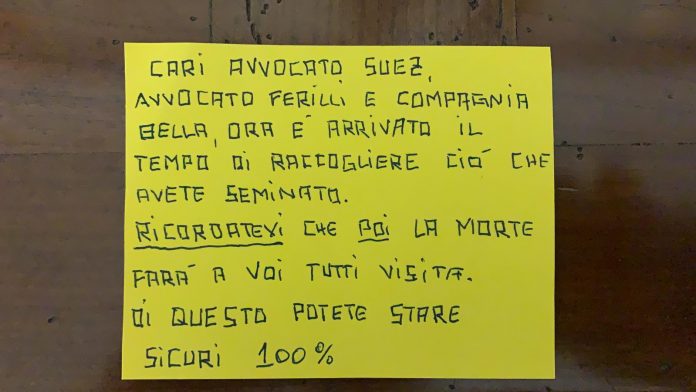 CARI AVVOCATO SUEZ,
AVVOCATO FERILLI E COMPAGNIA
BELLA, ORA E' ARRIVATO IL
TEMPO DI RACCOGLIERE CIO' CHE
AVETE SEMINATO.
RICORDATEVI CHE POI LA MORTE
FARA' A VOI TUTTI VISITA.
DI QUESTO POTETE STARE
SICURI 100%